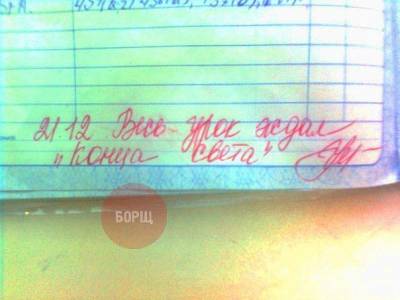 21.12 Весь урок ждал
"Конца света"
БОРЩ